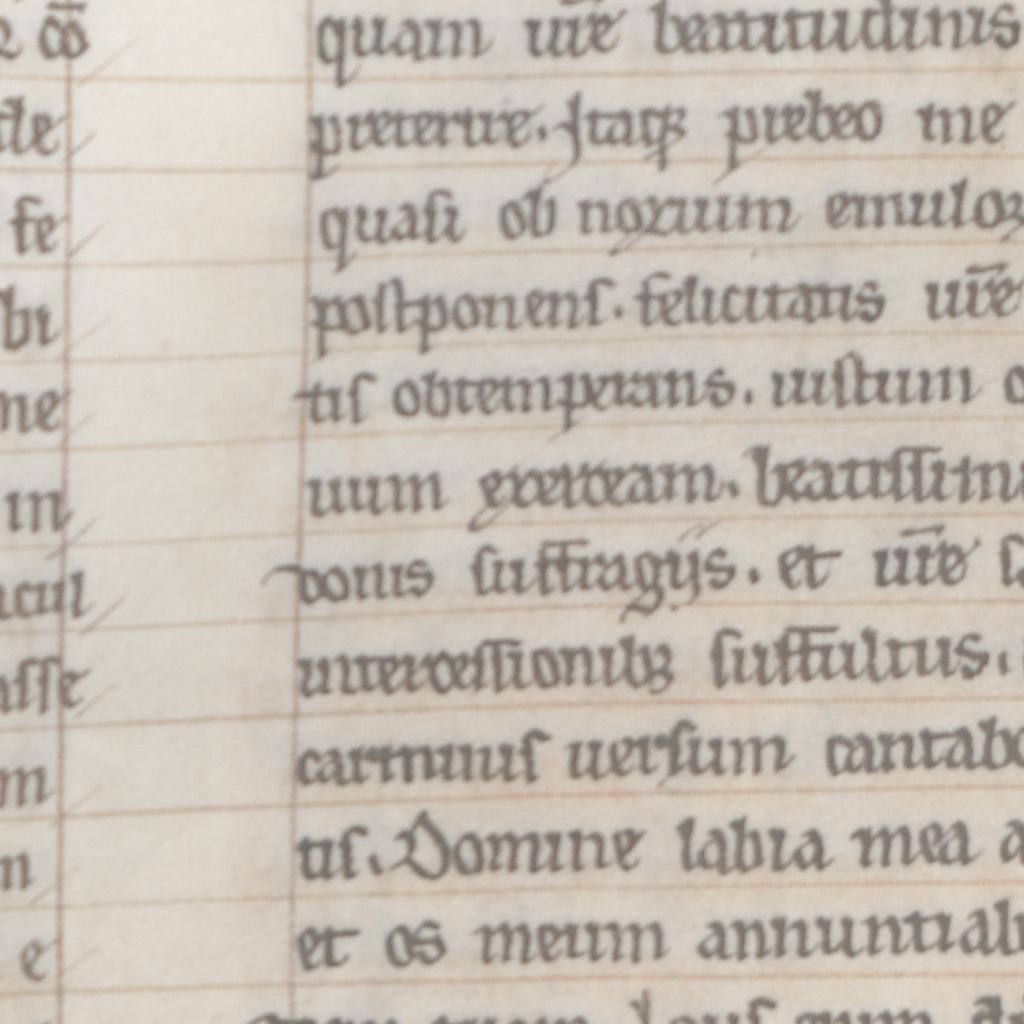 co̅
de
fe
bi
ne
in
acul
asse
m
n
e
quam ur̅e beatitudinis
preterire. Itaqꝫ prebeo me
quasi ob noxium emuloꝝ
postponens. felicitatis ur̅e
tis obtemperans. uistum
uum exerceam. beatissima
bonis suffragijs. et ur̅e
intercessionibꝫ suffultus.
carminis uersum cantabo
tis. Domine labia mea a
et os meum annuntiab